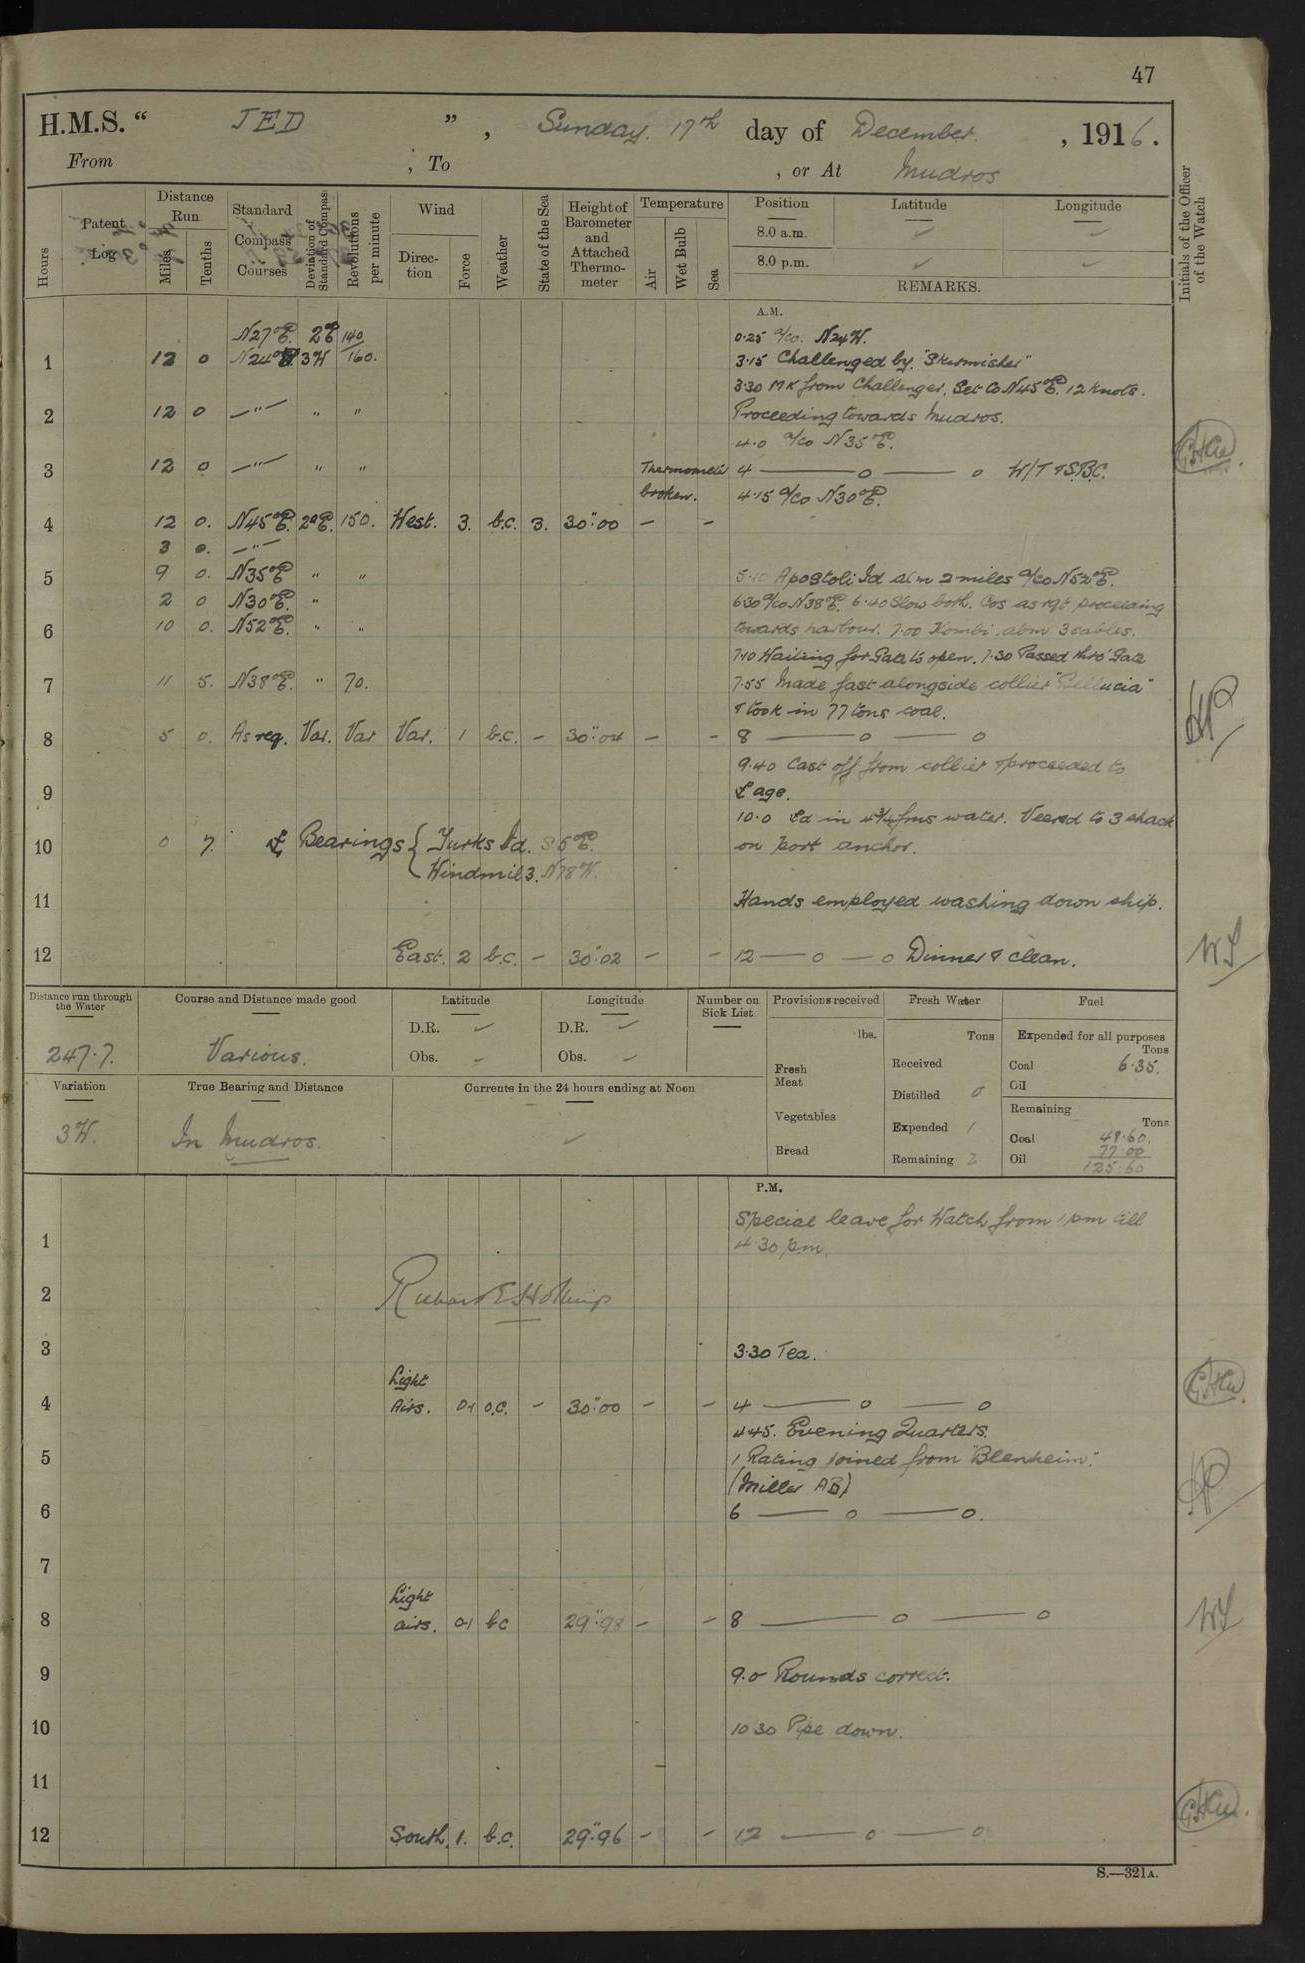 47
H.M.S. “ JED ”, Sunday. 17th day of December, 1916.
From , To , or At Mudros
Initials of the Officer of the Watch
Hours
Patent Log
Distance Run
Miles
Tenths
Standard Compass Courses
Deviation of Standard Compass
Revolutions per minute
Wind
Direction
Force
Weather
State of the Sea
Height of Barometer and Attached Thermometer
Temperature
Air
Wet Bulb
Sea
Position Latitude Longitude
8.0 a.m. ✓ ✓
8.0 p.m. ✓ ✓
REMARKS.
A.M.
N27°E. 2E 140 0.25 a/co. N24W.
1 12 0 N24°W 3W 160. 3.15 Challenged by. "Skirmisher"
3.30 MK from Challenger. Set Co N45°E. 12 knots.
2 12 0 —"— " " Proceeding towards Mudros.
4.0 a/co N35°E.
3 12 0 —"— " " Thermometer 4 — o — o W/T & S.B.C.
broken. 4.15 a/co N30°E.
4 12 0. N45°E. 2°E. 150. West. 3. b.c. 3. 30".00 — —
3 0. —"—
5 9 0. N35°E " " 5.10 Apostoli Id abm 2 miles a/co N52°E.
2 0 N30°E. " 6.30 a/co N38°E. 6.40 Slow both. Cos as rqt proceeding
6 10 0. N52°E. " " towards harbour. 7.00 Kombi. abm 3 cables.
7.10 Waiting for Gate to open. 7.30 Passed thro' Gate
7 11 5. N38°E. " 70. 7.55 Made fast alongside collier "Bellucia"
& took in 77 tons coal.
8 5 0. As req. Var. Var Var. 1 b.c. — 30".04 — — 8 — o — o
9.40 Cast off from collier & proceeded to
9 ⚓age.
10.0 ⚓d in 4¾ fms water. Veered to 3 shack
10 0 7. ⚓ Bearings { Turks Id. S5°E. on port anchor.
Windmill 3. N78°W.
11 Hands employed washing down ship.
12 East. 2 b.c. — 30".02 — — 12 — o — o Dinner & clean.
Distance run through the Water
247.7.
Course and Distance made good
Various.
Latitude
D.R. ✓
Obs. -
Longitude
D.R. ✓
Obs. -
Number on Sick List
Provisions received
lbs.
Fresh Meat
Vegetables
Bread
Fresh Water
Tons
Received
Distilled 0
Expended 1
Remaining
Fuel
Expended for all purposes
Tons
Coal 6.35.
Oil
Remaining
Tons
Coal 48.60.
77.00
Oil 125.60
Variation
3W.
True Bearing and Distance
In Mudros.
Currents in the 24 hours ending at Noon
✓
P.M.
Special leave for Watch from 1 pm till
1 4.30 pm.
2
3 3.30 Tea.
Light
4 Airs. 0-1 o.c. — 30".00 — — 4 — o — o
4.45. Evening Quarters.
5 1 Rating joined from "Blenheim".
(Miller AB)
6 6 — o — o.
7
Light
8 airs. 0-1 bc 29".98 — — 8 — o — o
9 9.0 Rounds correct.
10 10 30 Pipe down.
11
12 South. 1. b.c. 29".96 — — 12 — o — o
S.—321A.